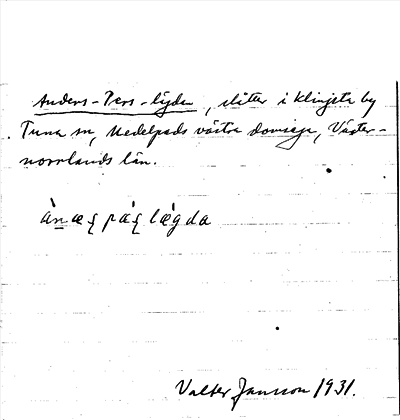 Anders-Pers-lägden, slåtter i Klingsta by
Tuna sn, Medelpads västra domsaga, Väster-
norrlands län.
ànæʂ pǽʂ lǽgda
Valter Jansson 1931.